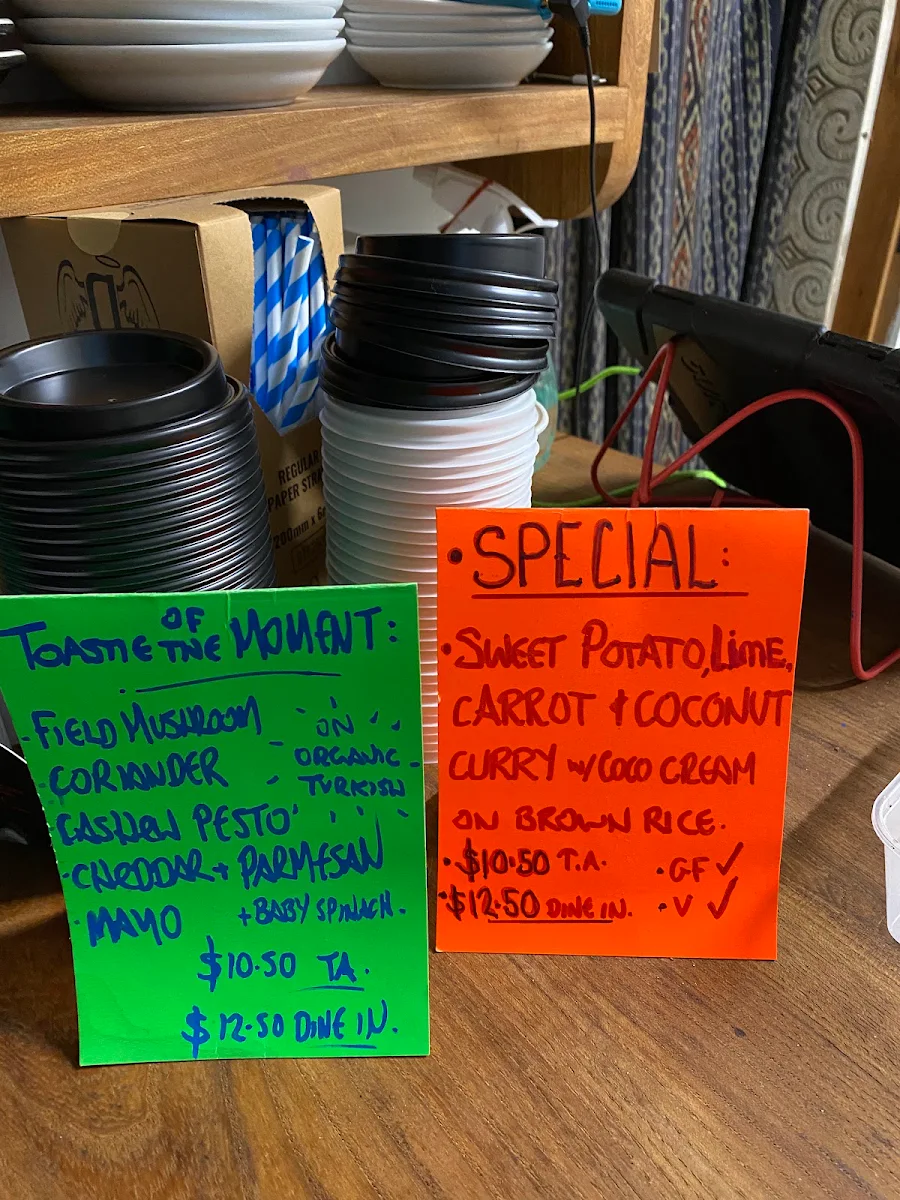 REGULAR
PAPER STRA
200mm x 6
TOASTIE OF THE MOMENT:
- FIELD MUSHROOM
- CORIANDER
CASHEW PESTO
- CHEDDAR + PARMESAN
- MAYO + BABY SPINACH.
ON
ORGANIC
TURKISH
$10.50 TA.
$12.50 DINE IN.
• SPECIAL:
• SWEET POTATO, LIME,
CARROT & COCONUT
CURRY w/ COCO CREAM
ON BROWN RICE.
• $10.50 T.A. • GF ✓
• $12.50 DINE IN. • V ✓